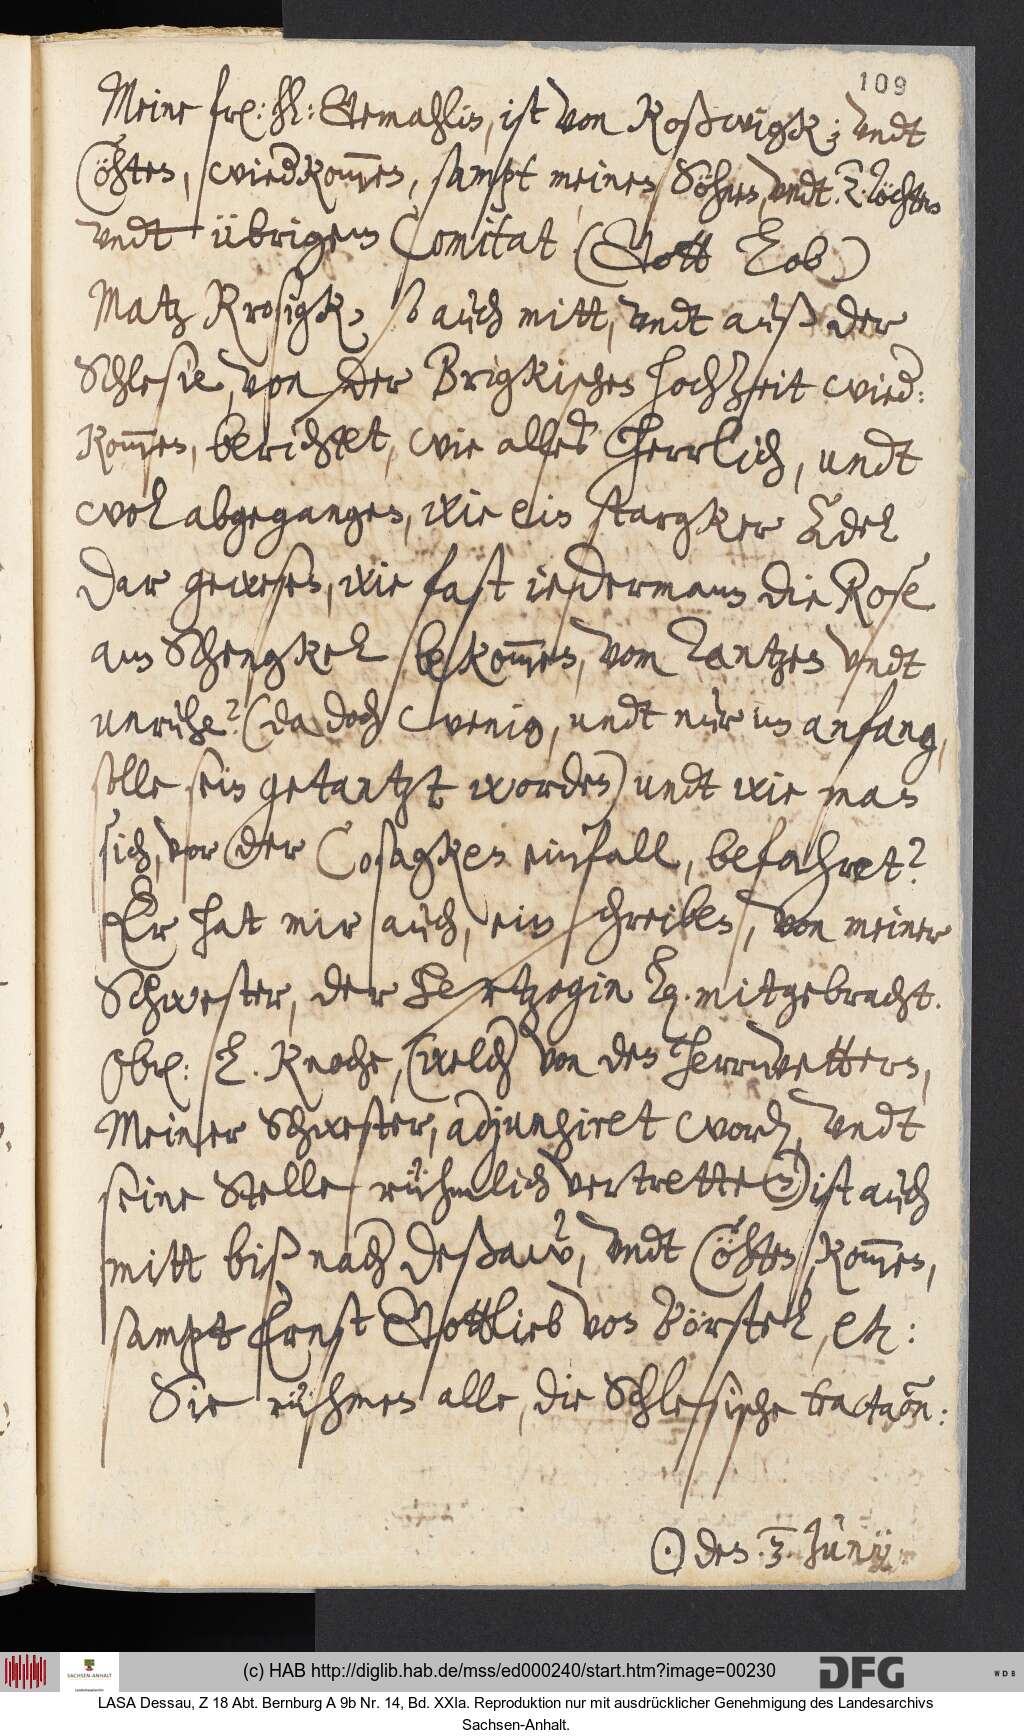 109
Meine fr: hl: Gemahlin, ist von Roßwigk; undt
Cöhten, wiedkommen, sampt meinen Söhnen, undt .2. Töchtern
undt übrigem Comitat (Gott Lob)
Matz Krosigk, ß auch mitt, undt auß der
Schlesie, von der Brigkischen hochzeit wied:
kommen, berichtet, wie alles herrlich, undt
wol abgegangen, wie ein stargker Adel
dar gewesen, wie fast iedermann die Rose
am Schengkel bekommen, vom Tantzen undt
unruhe? (da doch wenig, undt nur im anfang,
solle sein getantzt worden) undt wie man
sich, vor der Cosagken einfall, befahret?
Er hat mir auch, ein schreiben, von meiner
Schwester, der Hertzogin L. mitgebracht.
Obr: L. Knoche, (welch von des Herrnvettern,
Meiner Schwester, adjungiret word, undt
seine Stelle rühmlich vertrette) ist auch
mitt biß nach Deßaw, undt Cöhten, kommen,
sampt Ernst Gottlieb von Börstel, etc:
Sie rühmen alle, die Schlesische tractaõn:
☉ den .3. Junij
(c) HAB http://diglib.hab.de/mss/ed000240/start.htm?image=00230
SACHSEN-ANHALT
DFG
WDB
LASA Dessau, Z 18 Abt. Bernburg A 9b Nr. 14, Bd. XXIa. Reproduktion nur mit ausdrücklicher Genehmigung des Landesarchivs
Sachsen-Anhalt.